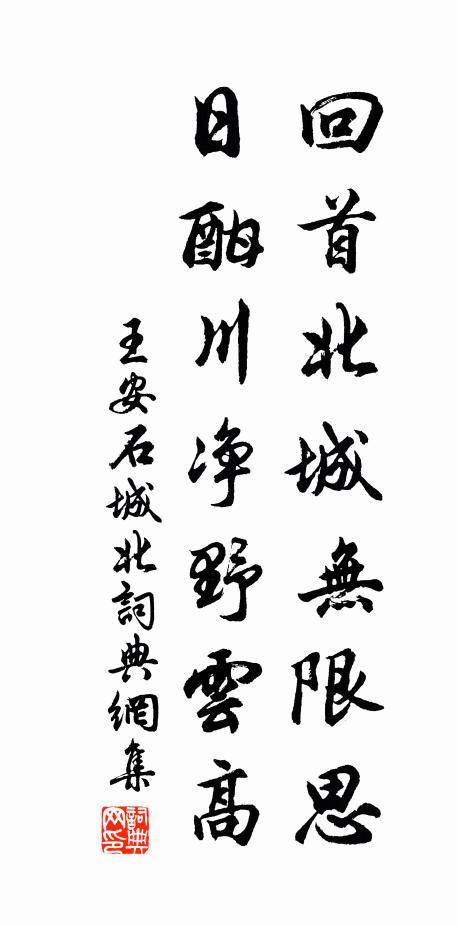 回首北城無限思
日酣川净野雲高
王安石城北詞典網集
詞典網印